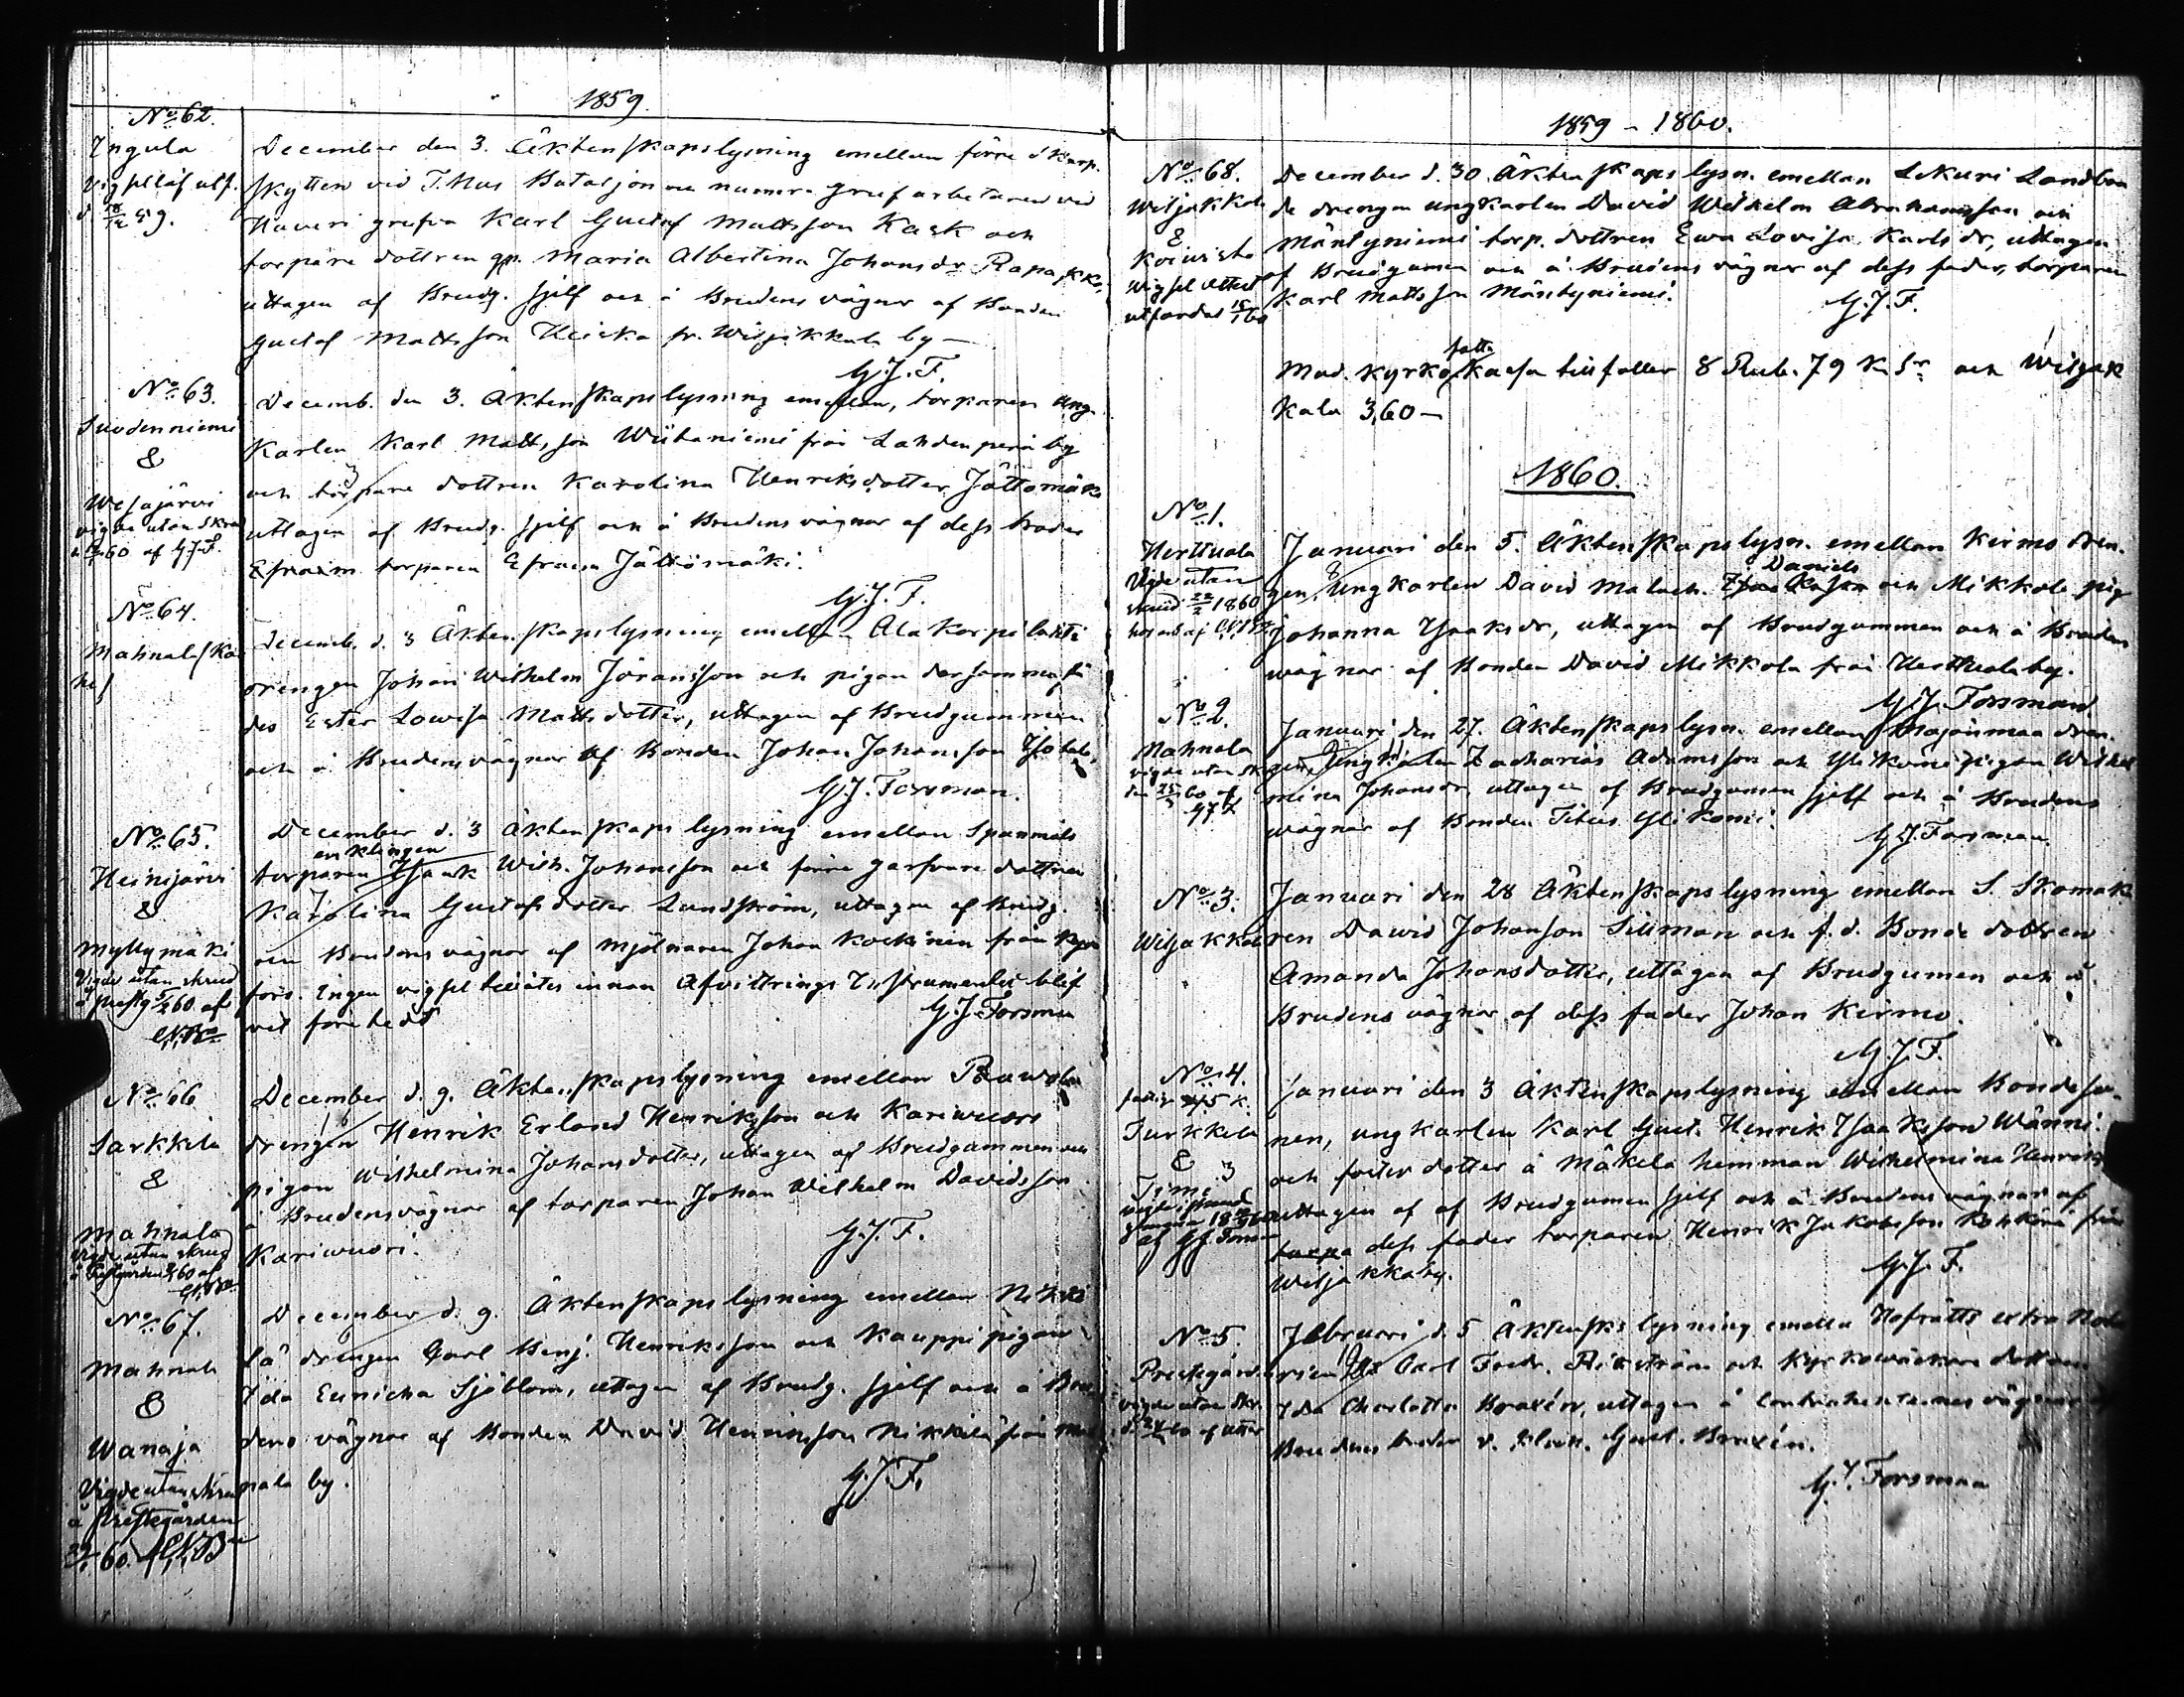 1859.
No 62.
Ingula
Vigsel
d 18/12 59.
December den 3. Äktenskapslysning emellan förre Skarp-
skytten vid T:Hus Bataljon nu mera grufarbetaren vid
Haveri grufva Karl Gustaf Mattsson Kask och
torpare dottren Maria Albertina Johansdr Rapakko,
uttagen af Brudg. sjelf och å Brudens vägnar af Bonden
Gustaf Mattsson Heiska fr. Wiljakkala by —
G.J.F.
No 63.
Suodenniemi
&
Wesajärvi
vigde utan skrud
60 af G.J.F.
Decemb. den 3. Äktenskapslysning emellan, torparen Ung-
Karlen Karl Mattsson Wiitaniemi från Lahdenperä by
och torpare dottren Karolina Henriksdotter Jättömäki
uttagen af Brudg. sjelf och å Brudens vägnar af dess broder
Efraim torparen Efraim Jättömäki.
G.J.F.
No 64.
Mahnala
Decemb. d. 3 Äktenskapslysning emellan Alakorpilahti
drengen Johan Wilhelm Jöransson och pigan dersammastä
des Ester Lowisa Mattsdotter, uttagen af Brudgummen
och å Brudens vägnar af Bonden Johan Johansson Isotalo,
G.J. Forsman.
No 65.
Heinijärvi
&
Myllymäki
Vigde utan skrud
å prestg 5/2 60 af
December d. 3 Äktenskapslysning emellan Spannmåls
enklingen
torparen Isaak Wilh. Johansson och förre garfvare dottren
Karolina Gustafsdotter Lundström, uttagen af Brudg.
och Brudens vägnar af Mjölnaren Johan Koskinen från Kyrö
fors. Ingen vigsel tillåtes innan Afvittrings Instrumentet blif
vit företedt
G.J. Forsman
No 66
Sarkkila
&
Mahnala
Vigde utan skrud
å Prestgården 60 af
December d. 9. Äktenskapslysning emellan
drengen Henrik Erland Henriksson och Kariwuori
pigan Wilhelmina Johansdotter, uttagen af Brudgummen och
å Brudens vägnar af torparen Johan Wilhelm Davidsson
Kariwuori.
G.J.F.
No 67.
Mahnala
&
Wanaja
Vigde utan skrud
å Prestegården
60.
December d. 9. Äktenskapslysning emellan Nikki
lä drengen Carl Benj. Henriksson och Kauppi pigan
Ida Eunicha Sjöblom, uttagen af Brudg. sjelf och å Bru
dens vägnar af Bonden David Henriksson Nikkilä från Mah
nala by.
G.J.F.
1859 – 1860.
No 68.
Wiljakkala
&
Koivisto
Wigsel attest
utfärdad 15/1 60
December d. 30. Äktenskaps lysn. emellan Lekuri Landbon
de drengen ungkarlen David Wilhelm Abrahamsson och
Mäntyniemi torp. dottren Ewa Lovisa Karlsdr, uttagen
af Brudgumen och å Brudens vägnar af dess fader, torparen
Karl Mattsson Mäntyniemi.
G.J.F.
fatti
Mod. kyrko kassa tillfaller 8 Rub. 79 K. Sr och Wiljak
kala 3,60 —
1860.
No 1.
Herttuala
Vigde utan
skrud 22/2 1860
Januari den 5. Äktenskapslysn. emellan Kirmo dren-
Daniels
gen, Ungkarlen David Malach. och Mikkola pig
Johanna Isaksdr, uttagen af Brudgummen och å Brudens
wägnar af Bonden David Mikkola från Herttuala by.
G.J. Forsman.
No 2.
Mahnala
vigde utan sk.
den 25/3 60 af
G.J.F.
Januari den 27. Äktenskapslysn. emellan Majanmaa dren-
gen, Ungkarlen Zacharias Adamsson och Ylikomi pigan Wilhel
mina Johansdr, uttagen af Brudgumen sjelf och å Brudens
wägnar af Bonden Titus Ylikomi.
G.J. Forsman.
No 3.
Wiljakkala
Januari den 28 Äktenskapslysning emellan S. Skomaka
ren Dawid Johansson Sillman och f.d. Bonde dottren
Amanda Johansdotter, uttagen af Brudgumen och å
Brudens vägnar af dess fader Johan Kirmo.
G.J.F.
No 4.
fattig 45 K.
Turkkila
&
Timi
af G.J. Forsman
Januari den 3 Äktenskapslysning emellan Bondeso-
nen, ungkarlen Karl Gust. Henrik Isaksson Wänni
och foster dotter å Mäkelä hemman Wilhelmina Henriksdr
uttagen af af Brudgumen sjelf och å Brudens vägnar af
torpa dess fader torparen Henrik Jakobsson från
Wiljakkaby.
G.J.F.
No 5
Prestegård
vigde utan skr.
Februari d. 5 Äktensks lysning emellan Hofrätts extra Nota
rien Carl Fredr. Rikström och Kyrkowäktare dottren
Ida Charlotta Boxén, uttagen å Contrahenternes vägnar af
Brudens broder v. Gust. Boxén.
G.J. Forsman